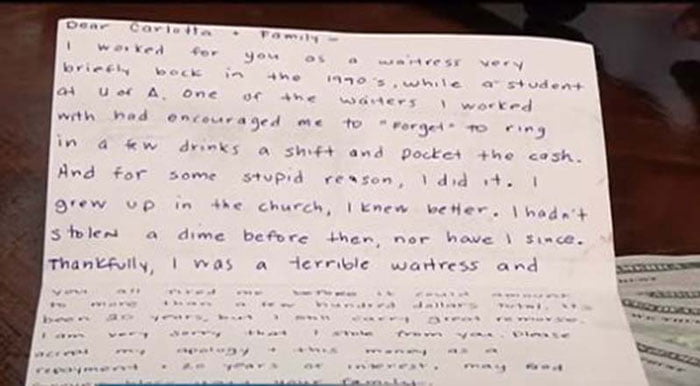 Dear Carlotta + Family -
I worked for you as a waitress very
briefly back in the 1990's, while a student
at U of A. One of the waiters I worked
with had encouraged me to "forget" to ring
in a few drinks a shift and pocket the cash.
And for some stupid reason, I did it. I
grew up in the church, I knew better. I hadn't
stolen a dime before then, nor have I since.
Thankfully, I was a terrible waitress and
you all fired me before it could amount
to more than a few hundred dollars total. It's
been 20 years, but I still carry great remorse.
I am very sorry that I stole from you. Please
accept my apology + this money as a
repayment + 20 years of interest. may God
bless your family.